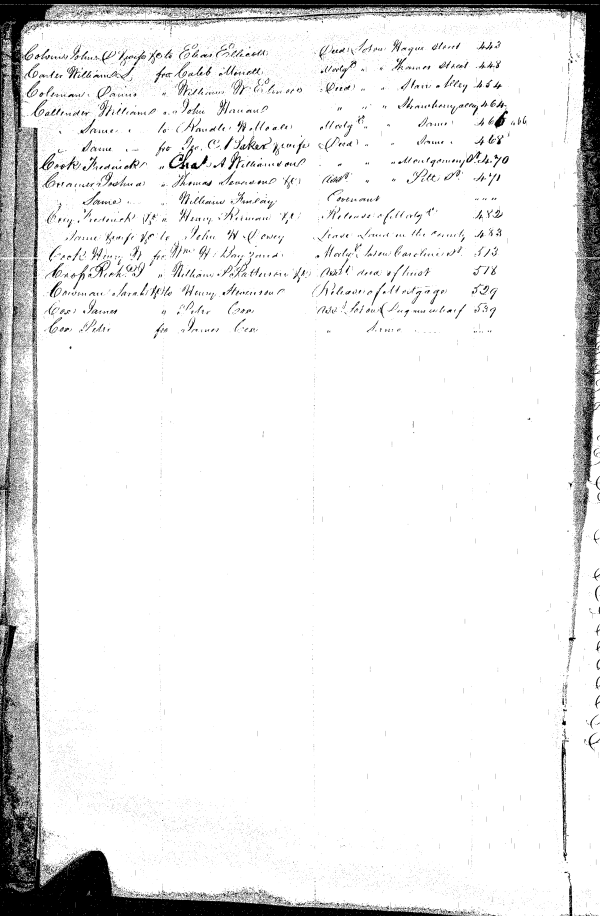 John & wife to Elias Ellicott Deed Lot on Hague Street 443
Carter William S, for Caleb Mortg.e " " Thames Street 448
Coleman " William W Deed " " Alley 454
Callender William " " John " " " Strawberry alley 464
" Same " to Randle H Moale Mortg.e " " Same " 466 " 466
" Same " for Geo. C. Baker & wife Deed " " Same " 468
Cook Frederick " Chas A Williamson " " " Montgomery St 470
Joshua " Thomas &c Ass.t " " Pitt St 471
" Same " " William Finlay Covenant " " "
Frederick &c " Henry &c Release of Mortg.e 482
Same & wife &c to John H Lease Land in the county 483
Cook Henry for Wm H Bayzand Mortg.e Lot on Caroline St. 513
" William P. Patterson &c Ass.t deed of trust 518
Cowman Sarah &c to Henry Stevenson Release of Mortgage 529
Cox James " Peter Cox Ass.t Lot on wharf 539
Cox Peter for James Cox " Same " "